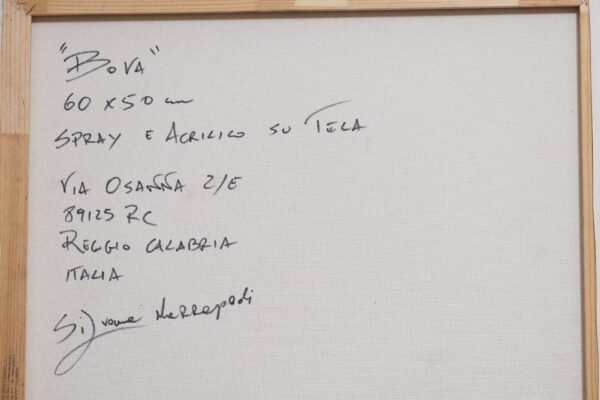 "BOVA"
60 x 50 cm
SPRAY E ACRILICO SU TELA
VIA OSANNA 2/E
89125 RC
REGGIO CALABRIA
ITALIA